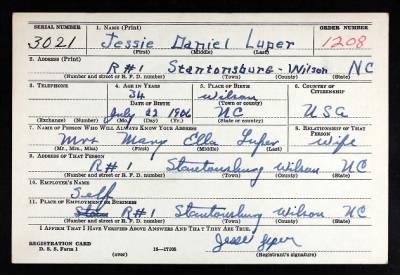 SERIAL NUMBER 1. NAME (Print) ORDER NUMBER
3021 Jessie Daniel Luper 1208
(First) (Middle) (Last)
2. ADDRESS (Print)
R#1 Stantonsburg - Wilson NC
(Number and street or R. F. D. number) (Town) (County) (State)
3. TELEPHONE 4. AGE IN YEARS 5. PLACE OF BIRTH 6. COUNTRY OF CITIZENSHIP
34 Wilson
DATE OF BIRTH (Town or county)
July 23 1906 NC USA
(Exchange) (Number) (Mo.) (Day) (Yr.) (State or country)
7. NAME OF PERSON WHO WILL ALWAYS KNOW YOUR ADDRESS 8. RELATIONSHIP OF THAT PERSON
Mrs Mary Ella Luper Wife
(Mr., Mrs., Miss) (First) (Middle) (Last)
9. ADDRESS OF THAT PERSON
R#1 Stantonsburg Wilson NC
(Number and street or R. F. D. number) (Town) (County) (State)
10. EMPLOYER'S NAME
Self
11. PLACE OF EMPLOYMENT OR BUSINESS
R#1 Stantonsburg Wilson NC
(Number and street or R. F. D. number) (Town) (County) (State)
I AFFIRM THAT I HAVE VERIFIED ABOVE ANSWERS AND THAT THEY ARE TRUE.
Jesse Luper
REGISTRATION CARD
D. S. S. Form 1 (over) 16—17105 (Registrant's signature)